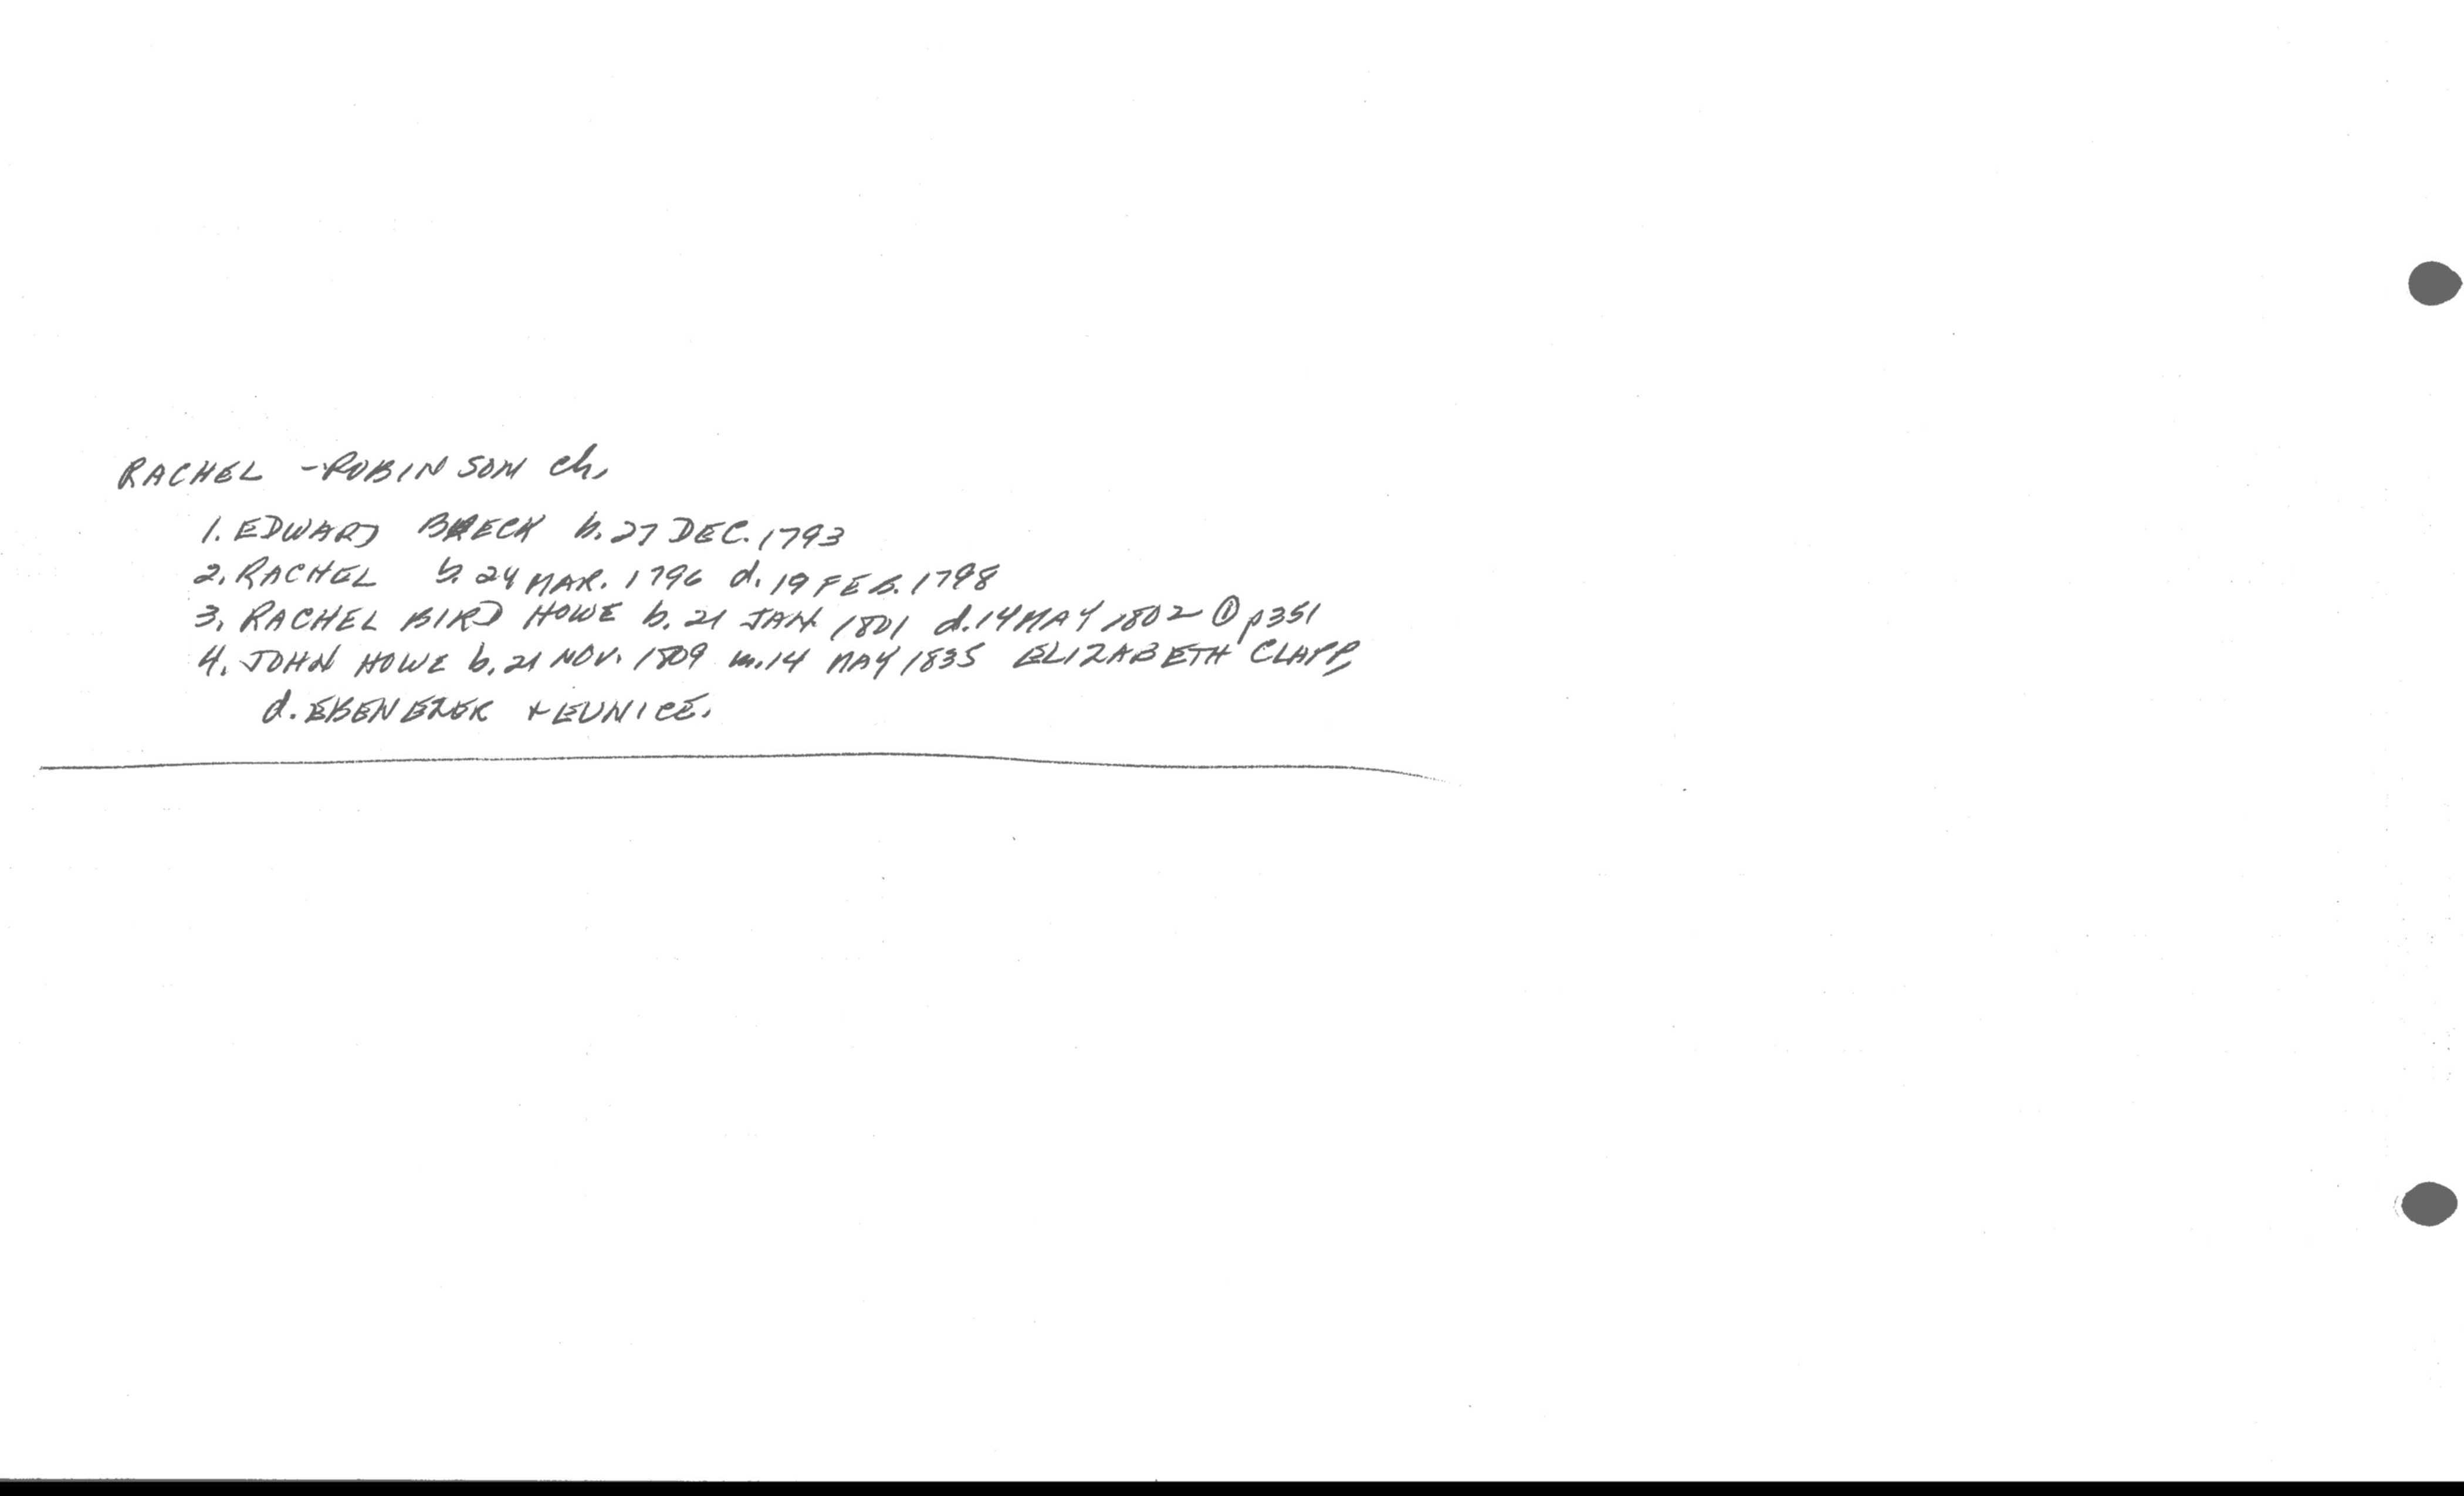 RACHEL - ROBINSON Ch.
1. EDWARD BRECK b. 27 DEC. 1793
2. RACHEL b. 24 MAR. 1796 d. 19 FEB. 1798
3. RACHEL BIRD HOWE b. 21 JAN. 1801 d. 14 MAY 1802 ① p351
4. JOHN HOWE b. 21 NOV. 1809 m. 14 MAY 1835 ELIZABETH CLAPP,
d. EBENEZER + EUNICE.